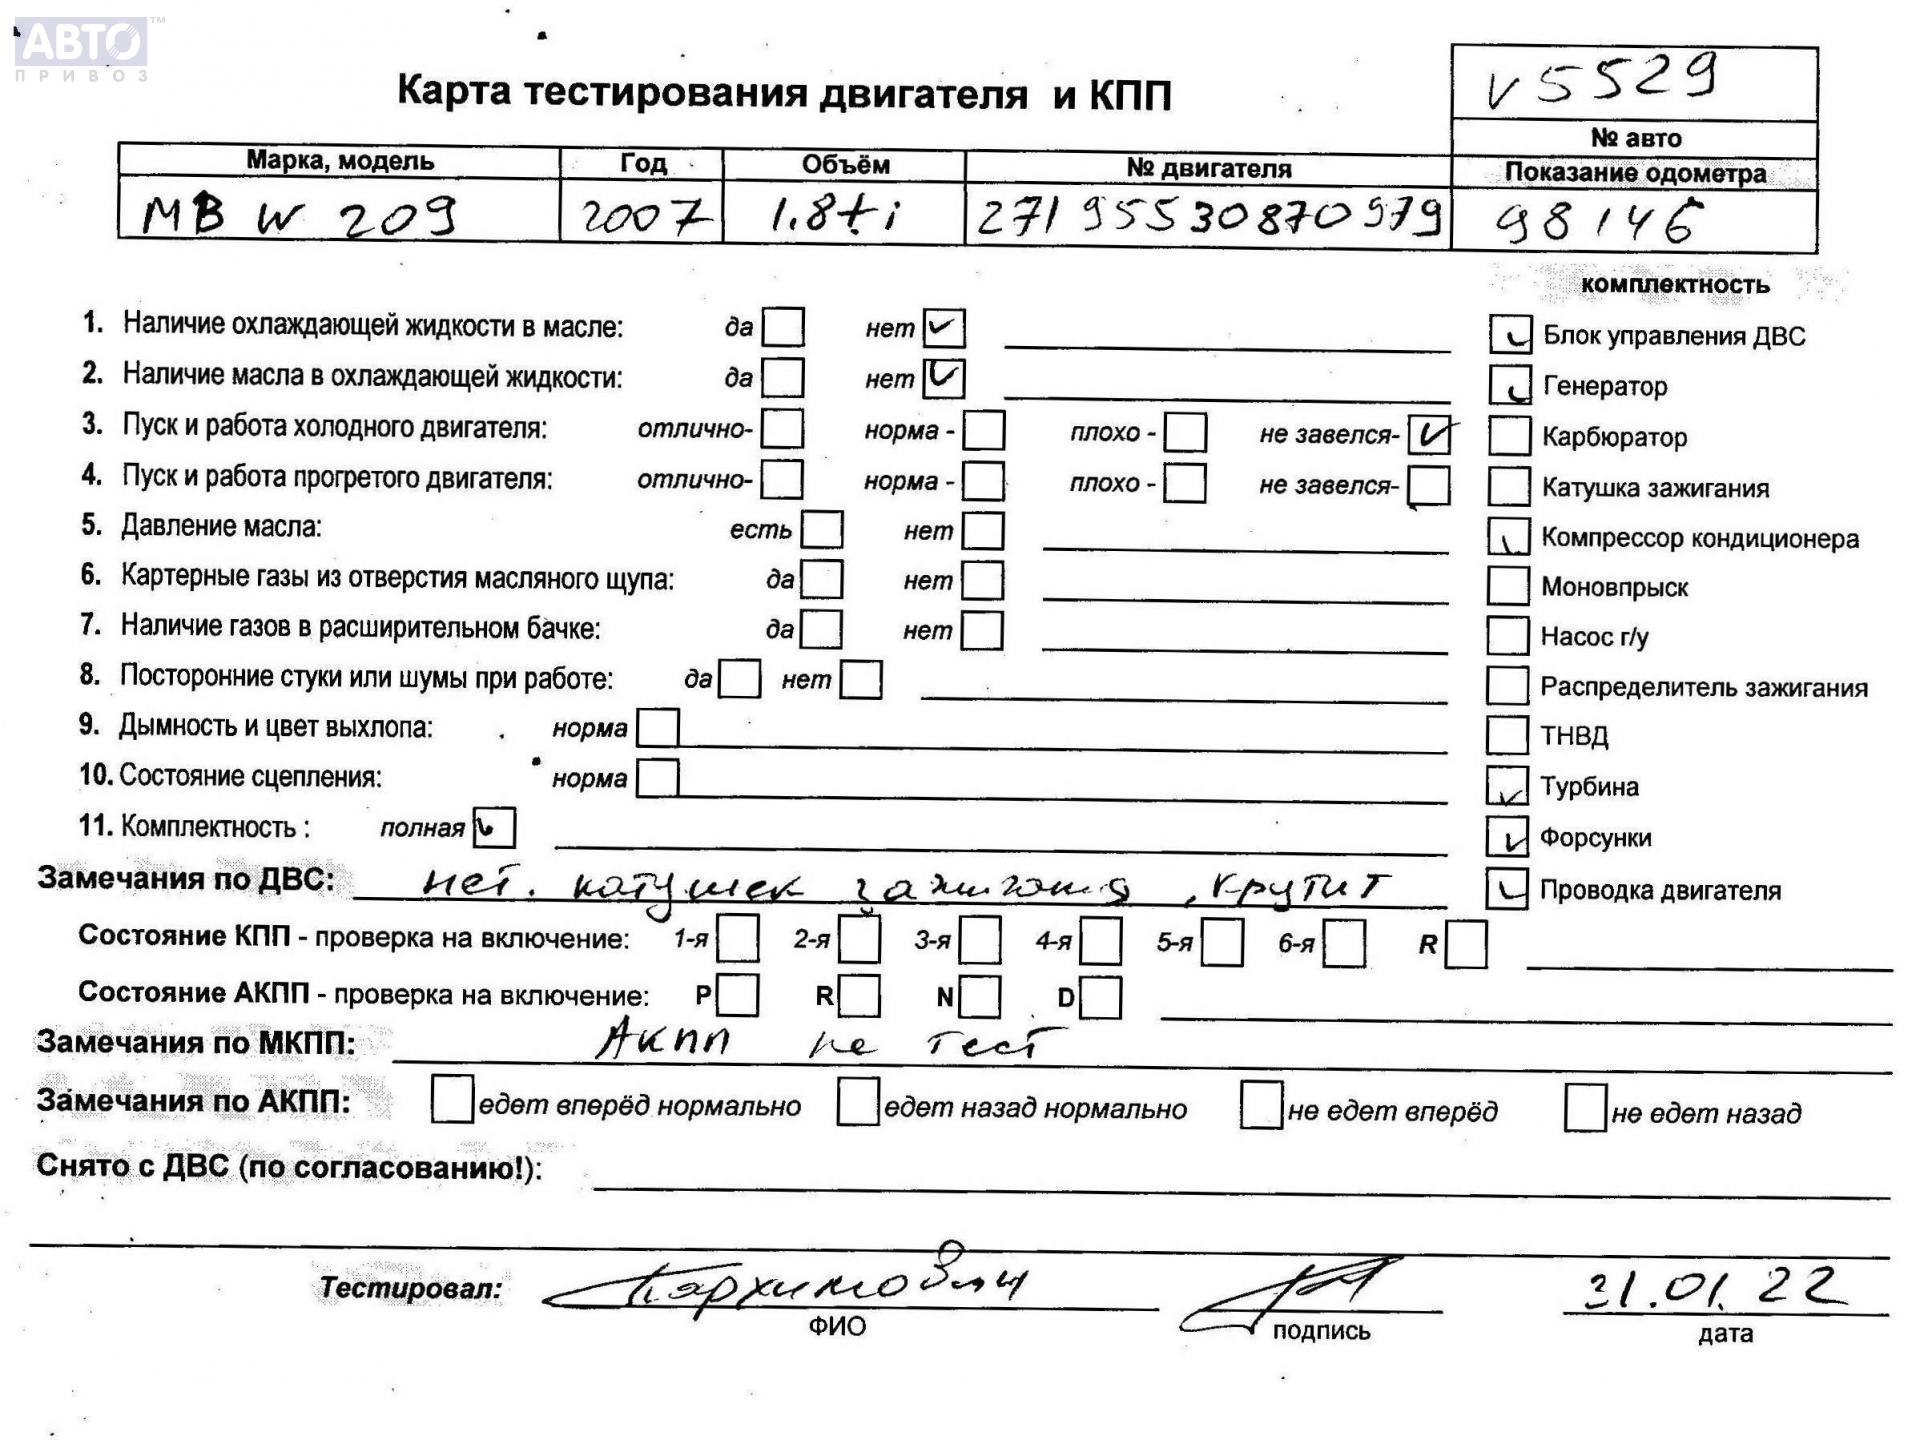 АВТО™
ПРИВОЗ
Карта тестирования двигателя и КПП
V5529
№ авто
Марка, модель Год Объём № двигателя Показание одометра
MB W 209 2007 1.8ti 27195530870979 98146
комплектность
1. Наличие охлаждающей жидкости в масле: да нет ✓ ✓ Блок управления ДВС
2. Наличие масла в охлаждающей жидкости: да нет ✓ ✓ Генератор
3. Пуск и работа холодного двигателя: отлично- норма - плохо - не завелся- ✓ Карбюратор
4. Пуск и работа прогретого двигателя: отлично- норма - плохо - не завелся- Катушка зажигания
5. Давление масла: есть нет ✓ Компрессор кондиционера
6. Картерные газы из отверстия масляного щупа: да нет Моновпрыск
7. Наличие газов в расширительном бачке: да нет Насос г/у
8. Посторонние стуки или шумы при работе: да нет Распределитель зажигания
9. Дымность и цвет выхлопа: норма ТНВД
10. Состояние сцепления: норма ✓ Турбина
11. Комплектность : полная ✓ ✓ Форсунки
Замечания по ДВС: нет. катушек зажигания, крутит ✓ Проводка двигателя
Состояние КПП - проверка на включение: 1-я 2-я 3-я 4-я 5-я 6-я R
Состояние АКПП - проверка на включение: P R N D
Замечания по МКПП: АКПП не тест
Замечания по АКПП: едет вперёд нормально едет назад нормально не едет вперёд не едет назад
Снято с ДВС (по согласованию!):
Тестировал: 31.01.22
ФИО подпись дата